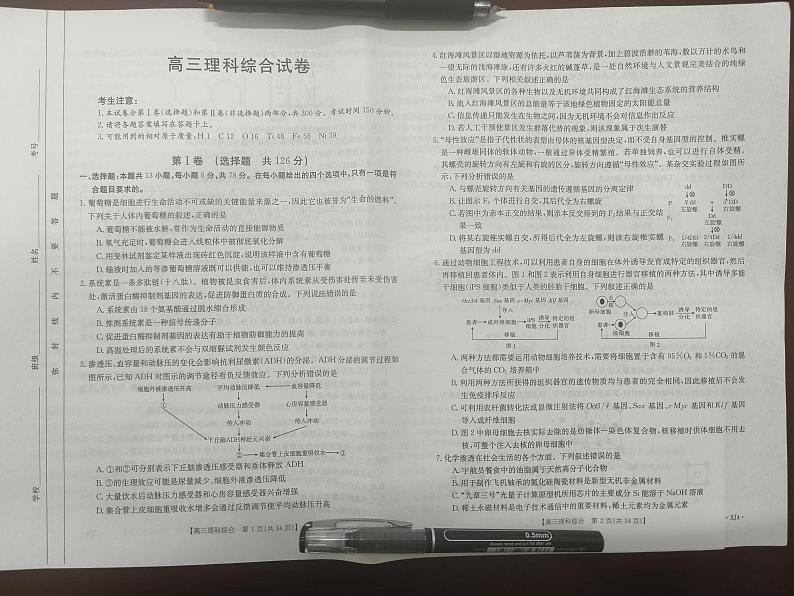 高三理科综合试卷
考生注意：
1.本试卷分第Ⅰ卷(选择题)和第Ⅱ卷(非选择题)两部分，共300分。考试时间150分钟。
2.请将各题答案填写在答题卡上。
3.可能用到的相对原子质量：H 1 C 12 O 16 Ti 48 Fe 56 Ni 59
第Ⅰ卷 (选择题 共126分)
一、选择题：本题共13小题，每小题6分，共78分。在每小题给出的四个选项中，只有一项是符
合题目要求的。
1.葡萄糖是细胞进行生命活动不可或缺的关键能量来源之一，因此它也被誉为“生命的燃料”。
下列关于人体内葡萄糖的叙述，正确的是
A.葡萄糖不能被水解，常作为生命活动的直接能源物质
B.氧气充足时，葡萄糖会进入线粒体中被彻底氧化分解
C.用斐林试剂鉴定某样液出现砖红色沉淀，说明该样液中含有葡萄糖
D.输液时加入的等渗葡萄糖溶液既可以供能，也可以维持渗透压平衡
2.系统素是一条多肽链(十八肽)。植物被昆虫食害后，体内系统素从受伤害处传至未受伤害
处，激活蛋白酶抑制剂基因的表达，促进防御蛋白质的合成。下列说法错误的是
A.系统素由18个氨基酸通过脱水缩合形成
B.推测系统素是一种信号传递分子
C.促进蛋白酶抑制剂基因的表达有助于植物防御能力的提高
D.高温处理后的系统素不会与双缩脲试剂发生颜色反应
3.渗透压、血容量和动脉压的变化会影响抗利尿激素(ADH)的分泌。ADH分泌的调节过程如
图所示，已知ADH对图示的调节途径有负反馈效应。下列分析错误的是
细胞外液渗透压升高 平均动脉压降低 血容量降低
① 动脉压力感受器 心房容量感受器
传入冲动 传入冲动
下丘脑ADH神经元兴奋
② 集合管上皮细胞重吸收水 ③
A.①和②可分别表示下丘脑渗透压感受器和垂体释放ADH
B.③的生理效应可能是尿量减少，细胞外液渗透压降低
C.大量饮水后动脉压力感受器和心房容量感受器兴奋增强
D.集合管上皮细胞重吸收水增多会通过反馈调节使平均动脉压升高
【高三理科综合 第1页(共14页)】
4.红海滩风景区以湿地资源为依托，以芦苇荡为背景，加上碧波浩渺的苇海，数以万计的水鸟和
一望无际的浅海滩涂，还有许多火红的碱蓬草，是一处自然环境与人文景观完美结合的纯绿
色生态旅游区。下列相关叙述正确的是
A.红海滩风景区的各种生物以及无机环境共同构成了红海滩生态系统的营养结构
B.流入红海滩风景区的总能量等于该地绿色植物固定的太阳能总量
C.信息传递只能发生在生物之间，因为无机环境不会对信息作出反应
D.若人工干预使景区发生群落代替的现象，则该现象属于次生演替
5.“母性效应”是指子代性状的表型由母体的核基因型决定，而不受自身基因型的控制。椎实螺
是一种雌雄同体的软体动物，一般通过异体受精繁殖。若单独饲养，也可以进行自体受精，
其螺壳的旋转方向有左旋和右旋的区分，旋转方向遵循“母性效应”。某杂交实验过程如图所
示，下列分析错误的是
A.与螺壳旋转方向有关基因的遗传遵循基因的分离定律
B.让图示F₁个体进行自交，其后代全为右螺旋
C.若图中为亲本正交的结果，则亲本反交得到的F₁结果与正交结
果一致
D.将某右旋椎实螺自交，所得后代全为左旋螺，则该右旋椎实螺
基因型为dd
dd DD
P ♀dd × ♂DD
左旋螺 右旋螺
F₁ Dd
左旋螺
⊗
F₂ 1/4DD 2/4Dd 1/4dd
右旋螺 右旋螺 右旋螺
6.通过动物细胞工程技术，可以利用患者自身的细胞在体外诱导发育成特定的组织器官，然后
再移植回患者体内。图1和图2表示利用自身细胞进行器官移植的两种方法，其中诱导多能
干细胞(iPS细胞)类似于人类的胚胎干细胞。下列叙述正确的是
Oct3/4基因、Sox基因、c-Myc和Klf基因
导入
患者 成纤维细胞 iPS细胞 诱导分化 特定的组织器官
移植
图1
去核
卵母细胞
注入
重构胚 诱导分化 特定的组织器官
患者 体细胞
移植
图2
A.两种方法都需要运用动物细胞培养技术，需要将细胞置于含有95%O₂和5%CO₂的混
合气体的CO₂培养箱中
B.利用两种方法所获得的组织器官的遗传物质均与患者的完全相同，因此移植后不会发
生免疫排斥反应
C.可利用农杆菌转化法或显微注射法将Oct3/4基因、Sox基因、c-Myc基因和Klf基因
导入成纤维细胞
D.图2中卵母细胞去核实际去除的是纺锤体—染色体复合物，核移植时供体细胞不用去
核，可整个注入去核的卵母细胞中
7.化学渗透在社会生活的各个方面。下列叙述错误的是
A.宇航员餐食中的油脂属于天然高分子化合物
B.用于机器人轴承的氮化硅陶瓷材料是新型无机非金属材料
C.“九章三号”光量子计算原型机所用芯片的主要成分Si能溶于NaOH溶液
D.稀土永磁材料是电子技术通信中的重要材料，稀土元素均为金属元素
【高三理科综合 第2页(共14页)】
·XJ4·
考号
姓名
班级
学校
密 封 线 内 不 要 答 题
0.5mm